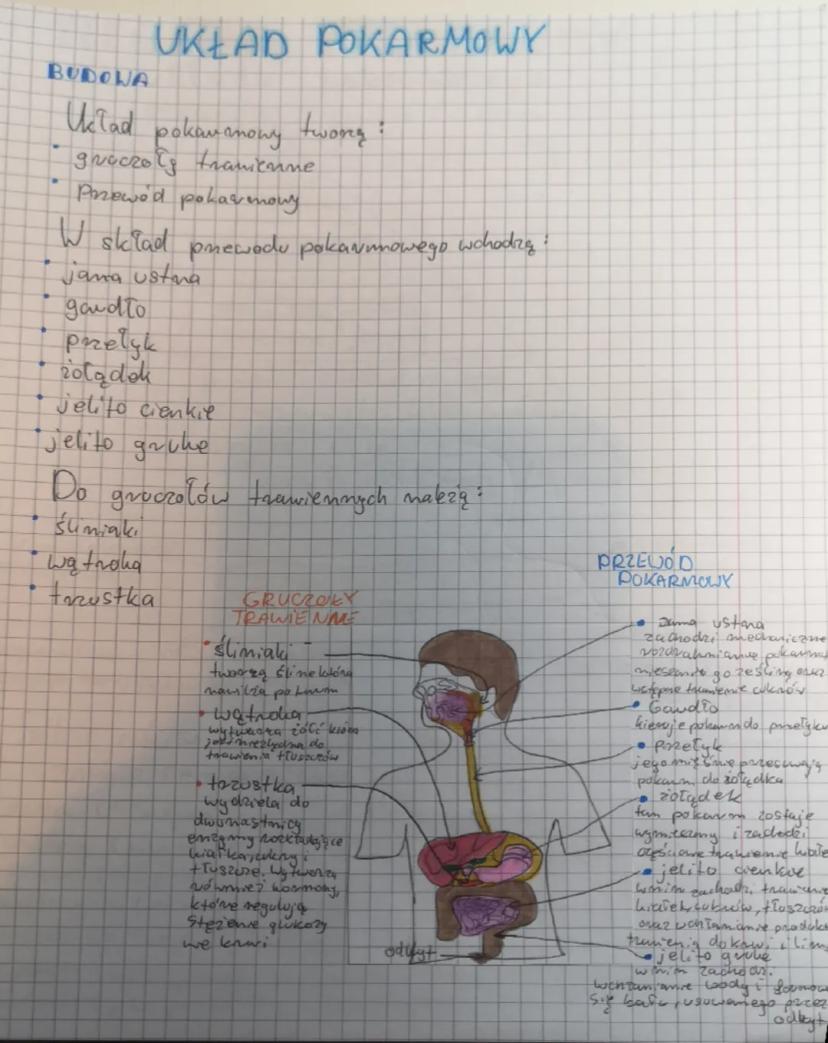 UKŁAD POKARMOWY
BUDOWA
Układ pokarmowy tworzą:
• gruczoły trawienne
• Przewód pokarmowy
W skład przewodu pokarmowego wchodzą:
• jama ustna
• gardło
• przełyk
• żołądek
• jelito cienkie
• jelito grube
Do gruczołów trawiennych należą:
• ślinianki
• wątroba
• trzustka
GRUCZOŁY
TRAWIENNE
• ślinianki
tworzą ślinę która
nawilża pokarm
• wątroba
wytwarza żółć która
jest niezbędna do
trawienia tłuszczów
• trzustka
wydziela do
dwunastnicy
enzymy rozkładające
białka, cukry i
tłuszcze. Wytwarza
również hormony,
które regulują
stężenie glukozy
we krwi
odbyt
PRZEWÓD
POKARMOWY
• Jama ustna
zachodzi mechaniczne
rozdrabnianie pokarmu
mieszanie go ze śliną oraz
wstępne trawienie cukrów
• Gardło
kieruje pokarm do przełyku
• przełyk
jego mięśnie przesuwają
pokarm do żołądka
• żołądek
tam pokarm zostaje
wymieszany i zachodzi
częściowe trawienie białe
• jelito cienkie
w nim zachodzi trawienie
białek, cukrów, tłuszczów
oraz wchłanianie produkt
trawienia do krwi i lim
• jelito grube
w nim zachodzi
wchłanianie wody i formow
się kału, usuwanego przez
odbyt